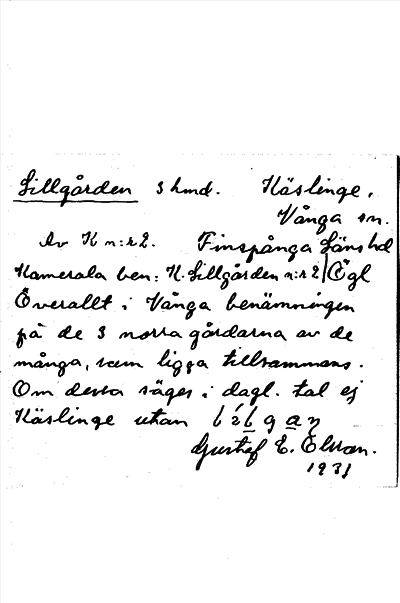 Lillgården 3 hmd. Käslinge,
Vånga sn.
Av K n:r 2. Finspånga Läns hd
Kamerala ben: K. Lillgården n:r 2 Ögl
Överallt i Vånga benämningen
på de 3 norra gårdarna av de
många, som ligga tillsammans.
Om dessa säges i dagl. tal ej
Käslinge utan
Gustaf E.
1931